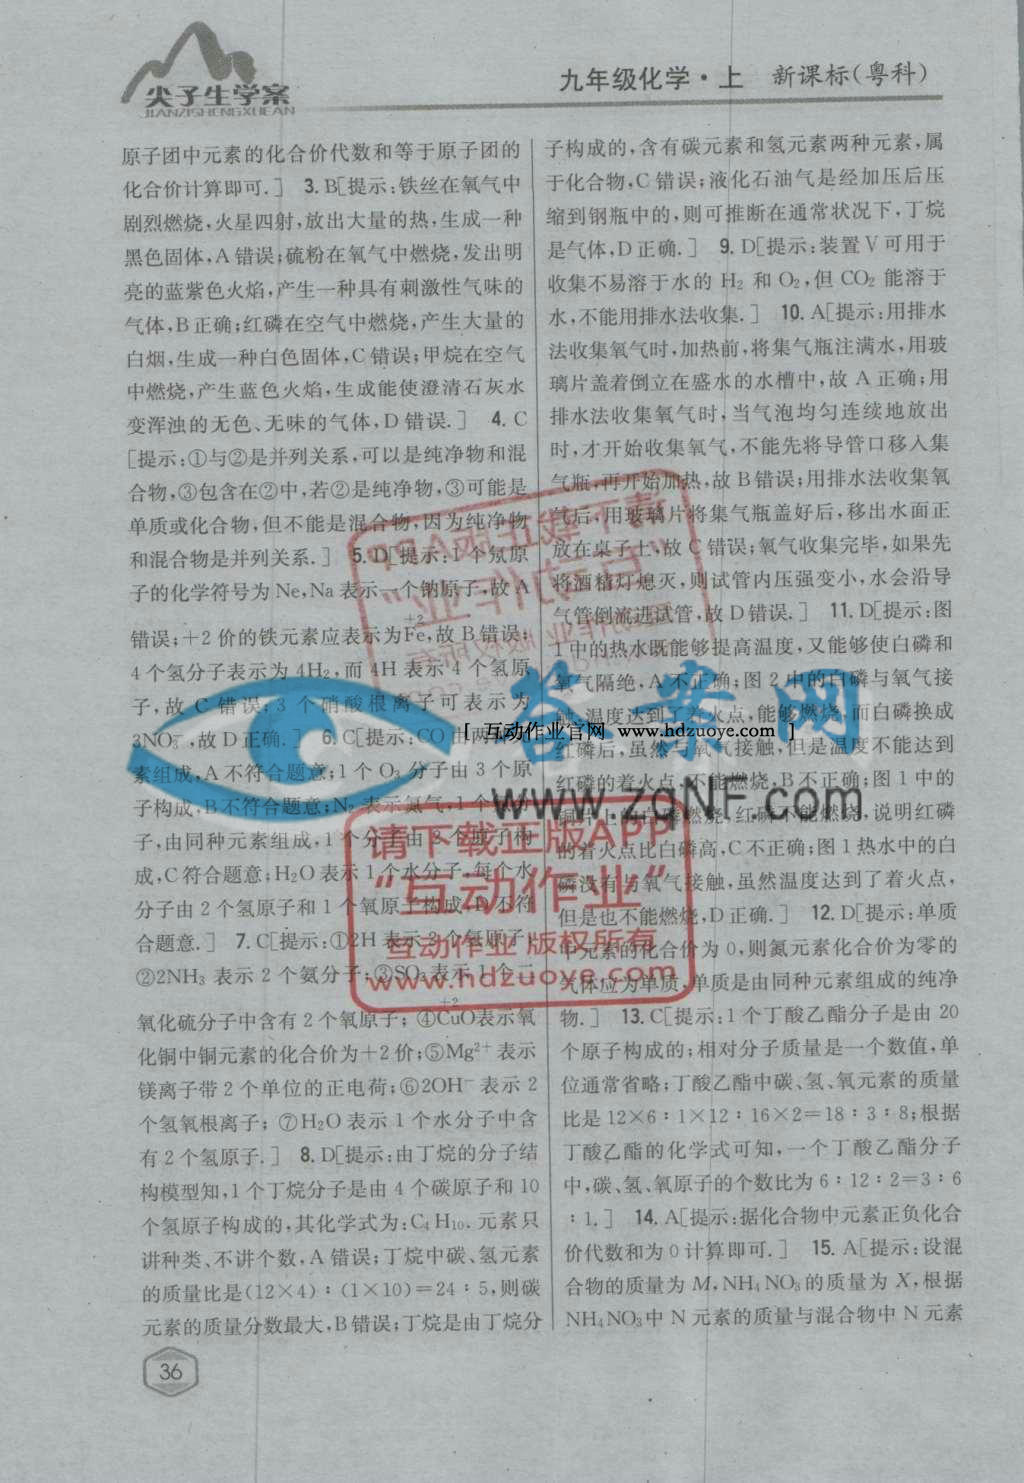 尖子生学案
JIANZISHENGXUEAN
九年级化学·上 新课标(粤科)
原子团中元素的化合价代数和等于原子团的
化合价计算即可.] 3. B[提示:铁丝在氧气中
剧烈燃烧,火星四射,放出大量的热,生成一种
黑色固体,A错误;硫粉在氧气中燃烧,发出明
亮的蓝紫色火焰,产生一种具有刺激性气味的
气体,B正确;红磷在空气中燃烧,产生大量的
白烟,生成一种白色固体,C错误;甲烷在空气
中燃烧,产生蓝色火焰,生成能使澄清石灰水
变浑浊的无色、无味的气体,D错误.] 4. C
[提示:①与②是并列关系,可以是纯净物和混
合物,③包含在②中,若②是纯净物,③可能是
单质或化合物,但不能是混合物,因为纯净物
和混合物是并列关系.] 5. D[提示:1个氖原
子的化学符号为Ne,Na表示一个钠原子,故A
错误;+2价的铁元素应表示为Fe(+2),故B错误;
4个氢分子表示为4H₂,而4H表示4个氢原
子,故C错误;3个硝酸根离子可表示为
3NO₃⁻,故D正确.] 6. C[提示:CO由两
素组成,A不符合题意;1个O₃分子由3个原
子构成,B不符合题意;N₂表示氮气,1个
子,由同种元素组成,1个分子由2个原子构
成,C符合题意;H₂O表示1个水分子,每个水
分子由2个氢原子和1个氧原子构成,D不符
合题意.] 7. C[提示:①2H表示2个氢原子;
②2NH₃表示2个氨分子;③SO₂表示1个二
氧化硫分子中含有2个氧原子;④Cu(+2)O表示氧
化铜中铜元素的化合价为+2价;⑤Mg²⁺表示
镁离子带2个单位的正电荷;⑥2OH⁻表示2
个氢氧根离子;⑦H₂O表示1个水分子中含
有2个氢原子.] 8. D[提示:由丁烷的分子结
构模型知,1个丁烷分子是由4个碳原子和10
个氢原子构成的,其化学式为:C₄H₁₀.元素只
讲种类、不讲个数,A错误;丁烷中碳、氢元素
的质量比是(12×4)∶(1×10)=24∶5,则碳
元素的质量分数最大,B错误;丁烷是由丁烷分
子构成的,含有碳元素和氢元素两种元素,属
于化合物,C错误;液化石油气是经加压后压
缩到钢瓶中的,则可推断在通常状况下,丁烷
是气体,D正确.] 9. D[提示:装置V可用于
收集不易溶于水的H₂和O₂,但CO₂能溶于
水,不能用排水法收集.] 10. A[提示:用排水
法收集氧气时,加热前,将集气瓶注满水,用玻
璃片盖着倒立在盛水的水槽中,故A正确;用
排水法收集氧气时,当气泡均匀连续地放出
时,才开始收集氧气,不能先将导管口移入集
气瓶,再开始加热,故B错误;用排水法收集氧
气后,用玻璃片将集气瓶盖好后,移出水面正
放在桌子上,故C错误;氧气收集完毕,如果先
将酒精灯熄灭,则试管内压强变小,水会沿导
气管倒流进试管,故D错误.] 11. D[提示:图
1中的热水既能够提高温度,又能够使白磷和
氧气隔绝,A不正确;图2中的白磷与氧气接
触,温度达到了着火点,能够燃烧,而白磷换成
红磷后,虽然与氧气接触,但是温度不能达到
红磷的着火点,不能燃烧,B不正确;图1中的
铜片上的白磷燃烧,红磷不能燃烧,说明红磷
的着火点比白磷高,C不正确;图1热水中的白
磷没有与氧气接触,虽然温度达到了着火点,
但是也不能燃烧,D正确.] 12. D[提示:单质
中元素的化合价为0,则氮元素化合价为零的
气体应为单质,单质是由同种元素组成的纯净
物.] 13. C[提示:1个丁酸乙酯分子是由20
个原子构成的;相对分子质量是一个数值,单
位通常省略;丁酸乙酯中碳、氢、氧元素的质量
比是12×6∶1×12∶16×2=18∶3∶8;根据
丁酸乙酯的化学式可知,一个丁酸乙酯分子
中,碳、氢、氧原子的个数比为6∶12∶2=3∶6
∶1.] 14. A[提示:据化合物中元素正负化合
价代数和为0计算即可.] 15. A[提示:设混
合物的质量为M,NH₄NO₃的质量为X,根据
NH₄NO₃中N元素的质量与混合物中N元素
36
答案网
www.zqNF.com
[ 互动作业官网 www.hdzuoye.com ]
请下载正版APP
“互动作业”
互动作业 版权所有
www.hdzuoye.com